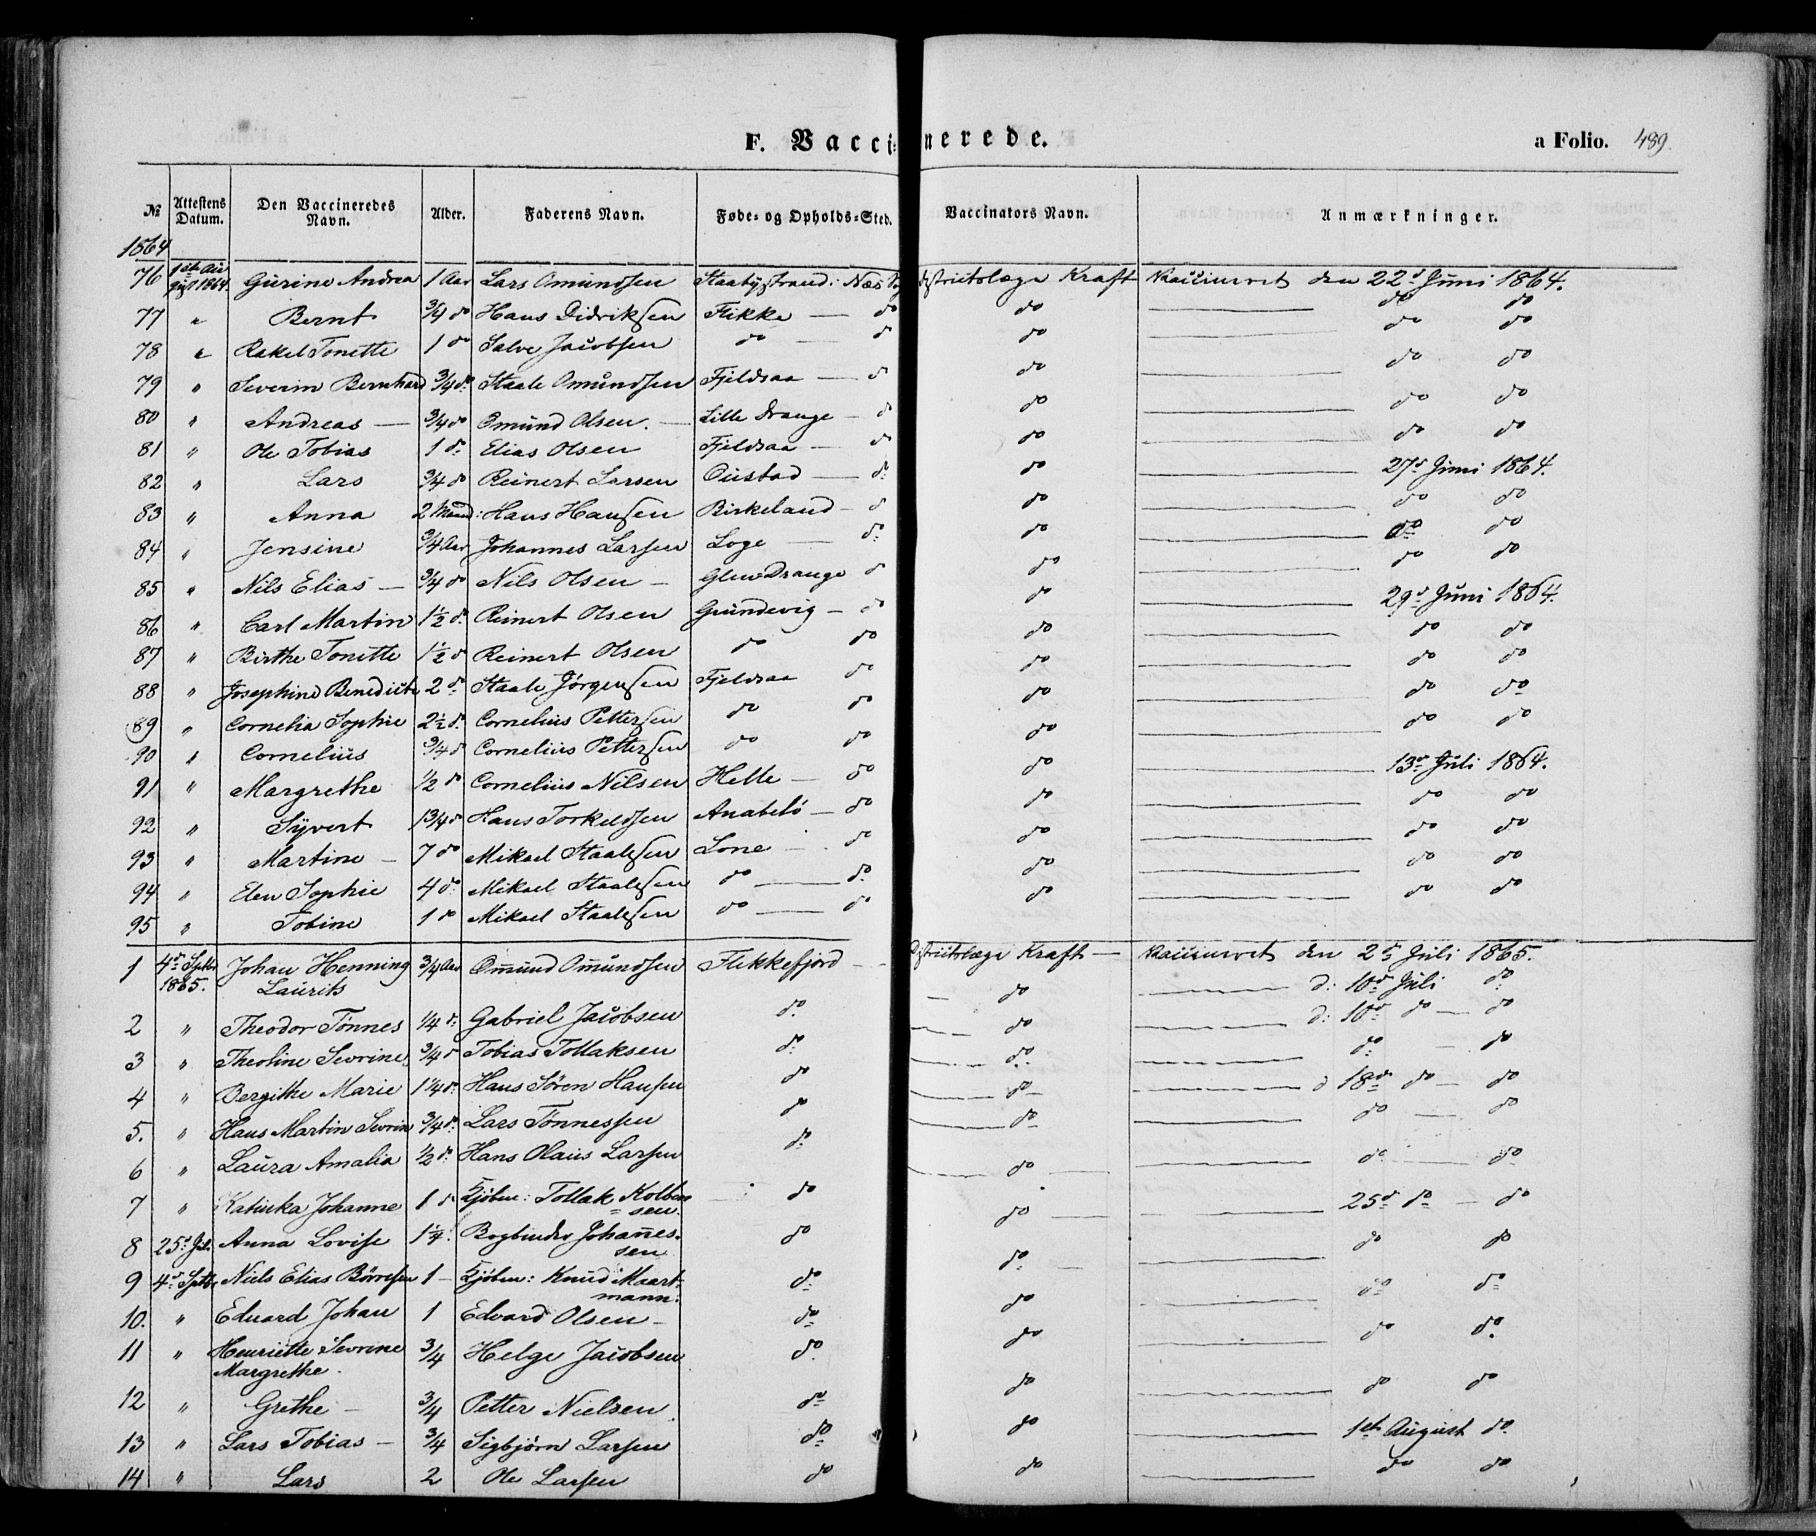 F. Vaccinerede.
a Folio. 489.
№ Attestens Datum. Den Vaccineredes Navn. Alder. Faderens Navn. Føde- og Opholds-Sted. Vaccinators Navn. Anmærkninger.
1864
76 1ste August 1864 Gurine Andrea 1 Aar Lars Omundsen Næs Districtslæge Kraft Vaccineret den 22d Juni 1864.
77 " Bernt 3/4 do Hans Didriksen Flikke — do do do do
78 " Rakel Tonette 1 do Salve Jacobsen do — do do do do
79 " Severin Bernhard 3/4 do Staale Omundsen Fjeldsaa — do do do do
80 " Andreas — 3/4 do Omund Olsen. — Lille Drange — do do do do
81 " Ole Tobias 1 do Elias Olsen Fjeldsaa — do do do do
82 " Lars 3/4 do Reinert Larsen Oustad — do do 27d Juni 1864.
83 " Anna 2 Maand: Hans Hansen Birkeland — do do do do
84 " Jensine 3/4 Aar Johannes Larsen Loge — do do do do
85 " Nils Elias — 3/4 do Nils Olsen — Drange do do do do
86 " Carl Martin 1½ do Reinert Olsen Grundevig — do do 29d Juni 1864.
87 " Birthe Tonette 1½ do Reinert Olsen do do do do do
88 " Josephine Benedicte 2 do Staale Jørgensen Fjeldsaa do do do do
89 " Cornelia Sophie 2½ do Cornelius Pettersen do do do do do
90 " Cornelius 3/4 do Cornelius Pettersen do do do do do
91 " Margrethe ½ do Cornelius Nilsen Helle — do do 13de Juli 1864.
92 " Syvert 1 3/4 do Hans Torkeldsen Anabelø — do do do do
93 " Martine — 7 do Mikael Staalesen Lone — do do do do
94 " Elen Sophie 4 do Mikael Staalesen do — do do do do
95 " Tobine 1 do Mikael Staalesen do — do do do do
1 4d Septbr 1865. Johan Henning Laurits 3/4 Aar Omund Omundsen Flekkefjord — Districtslæge Kraft — Vaccineret den 2d Juli 1865.
2 " Theodor Tønnes 1/4 do Gabriel Jacobsen do do d: 10d Juli do
3 " Theoline Sevrine 3/4 do Tobias Tollaksen do do d: 10d do — do
4 " Bergithe Marie 1 1/4 do Hans Søren Hansen do do do — do
5. " Hans Martin Sevrin 3/4 do Lars Tønnessen do do d 18de do — do
6 " Laura Amalia ½ do Hans Olaus Larsen do do do — do
7 " Katinka Johanne 1 do Kjøbm: Tollak Kolbensen. do do do do
8 25d Jul. Anna Lovise 1 1/4. Bogbinder Johannessen do do 25d do — do
9 4d Septbr Niels Elias Børresen 1 — Kjøbm: Knud Maartmann. do do do do
10. " Eduard Johan 1 Edvard Olsen — do do do do
11 " Henriette Sevrine Margrethe. 3/4 Helge Jacobsen do do do do
12 " Grethe — 3/4 Petter Nielsen do do do do
13 " Lars Tobias — 3/4 Sigbjørn Larsen do do 1ste August do
14 " Lars 2 Ole Larsen do do do do